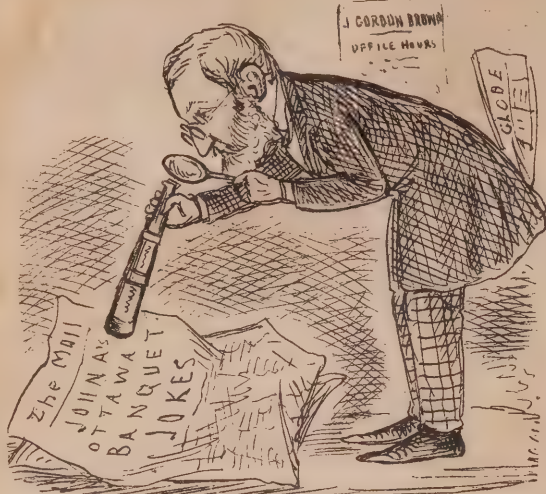 J GORDON BROWN
OFFICE HOURS
GLOBE
The MAIL
JOHN A'S
OTTAWA
BANQUET
JOKES